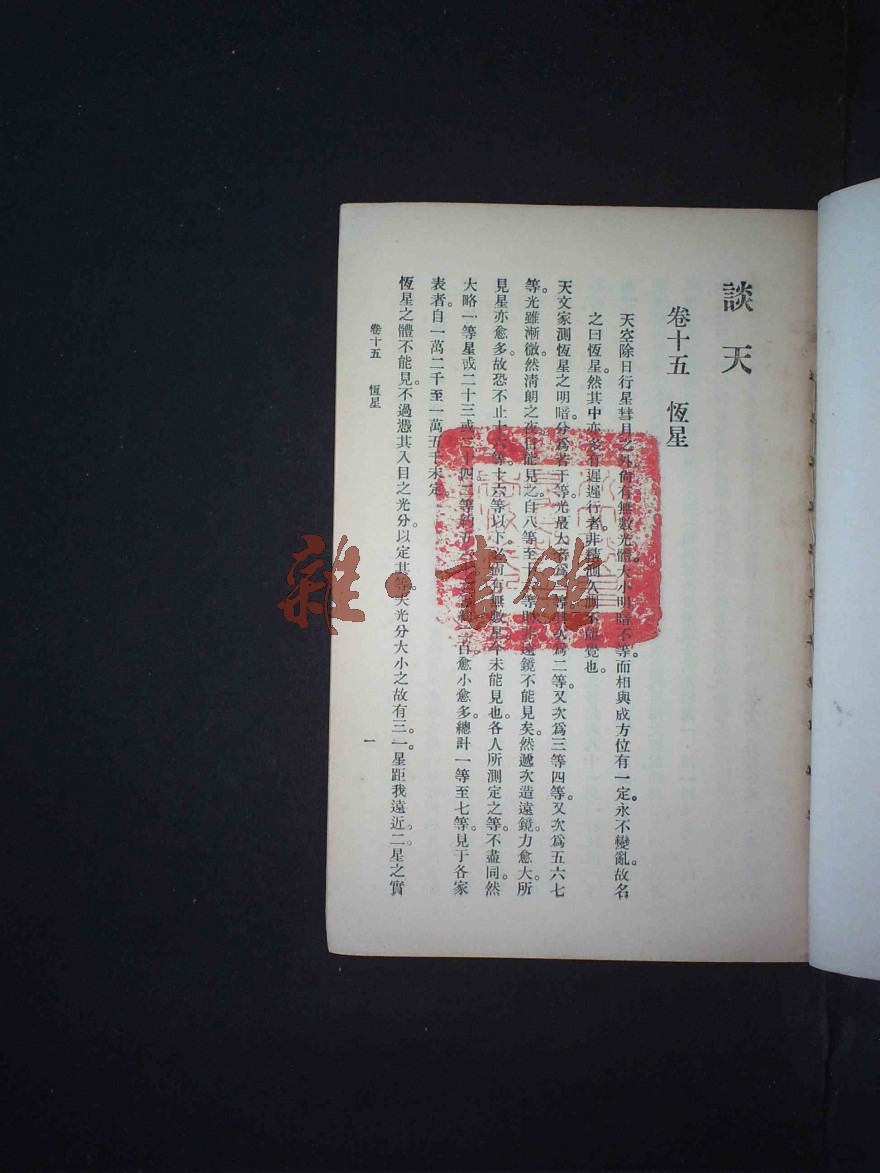 談天
卷十五　恆星
天空除日行星彗月之外尙有無數光體大小明暗不等而相與成方位有一定永不變亂故名
之曰恆星然其中亦多有遲遲行者非精測久測不能覺也
天文家測恆星之明暗分爲若干等光最大者爲一等其次爲二等又次爲三等四等又次爲五六七
等光雖漸微然清朗之夜目能見之自八等至十六等則非遠鏡不能見矣然遞次造遠鏡力愈大所
見星亦愈多故恐不止十六等十六等以下必尙有無數星今未能見也各人所測定之等不盡同然
大略一等星或二十三或二十四二等約五三等約二百愈小愈多總計一等至七等見于各家
表者自一萬二千至一萬五千未定
恆星之體不能見不過憑其入目之光分以定其等夫光分大小之故有三一星距我遠近二星之實
卷十五　恆星
一
雜·書館